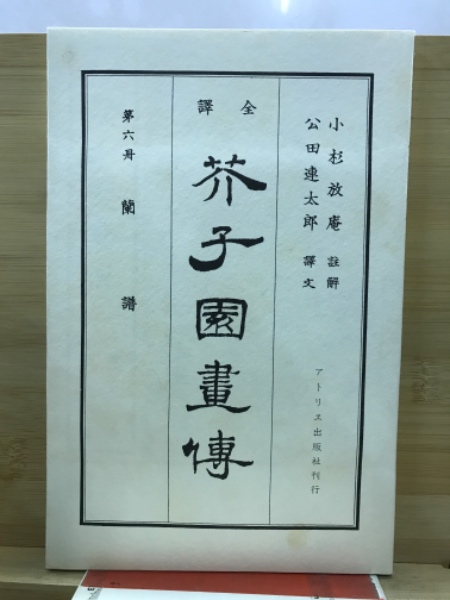 小杉放庵 註解
公田連太郎 譯文
アトリヱ出版社刊行
全譯
芥子園畫傳
第六冊 蘭譜